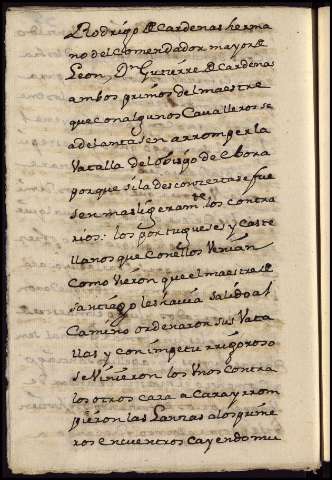 Rodrigo de Cardenas herma
no del Comendador mayor de
Leon, Dn Gutierre de Cardenas
ambos primos del maestre
que con algunos Cavalleros se
adelantasen a rromper la
Vatalla del obispo de Ebora
porque si la desconcertase fue
sen mas ligeramte los contra
rios: los portugueses y Caste
llanos que con ellos Venian
como vieron que el maestre de
santiago les havia salido al
Camino ordenaron sus Vata
llas y con impetu rrigoroso
se Vinieron los Unos contra
los otros cara a Cara y rrom
pieron las Lanzas a los prime
ros encuentros Cayendo mu